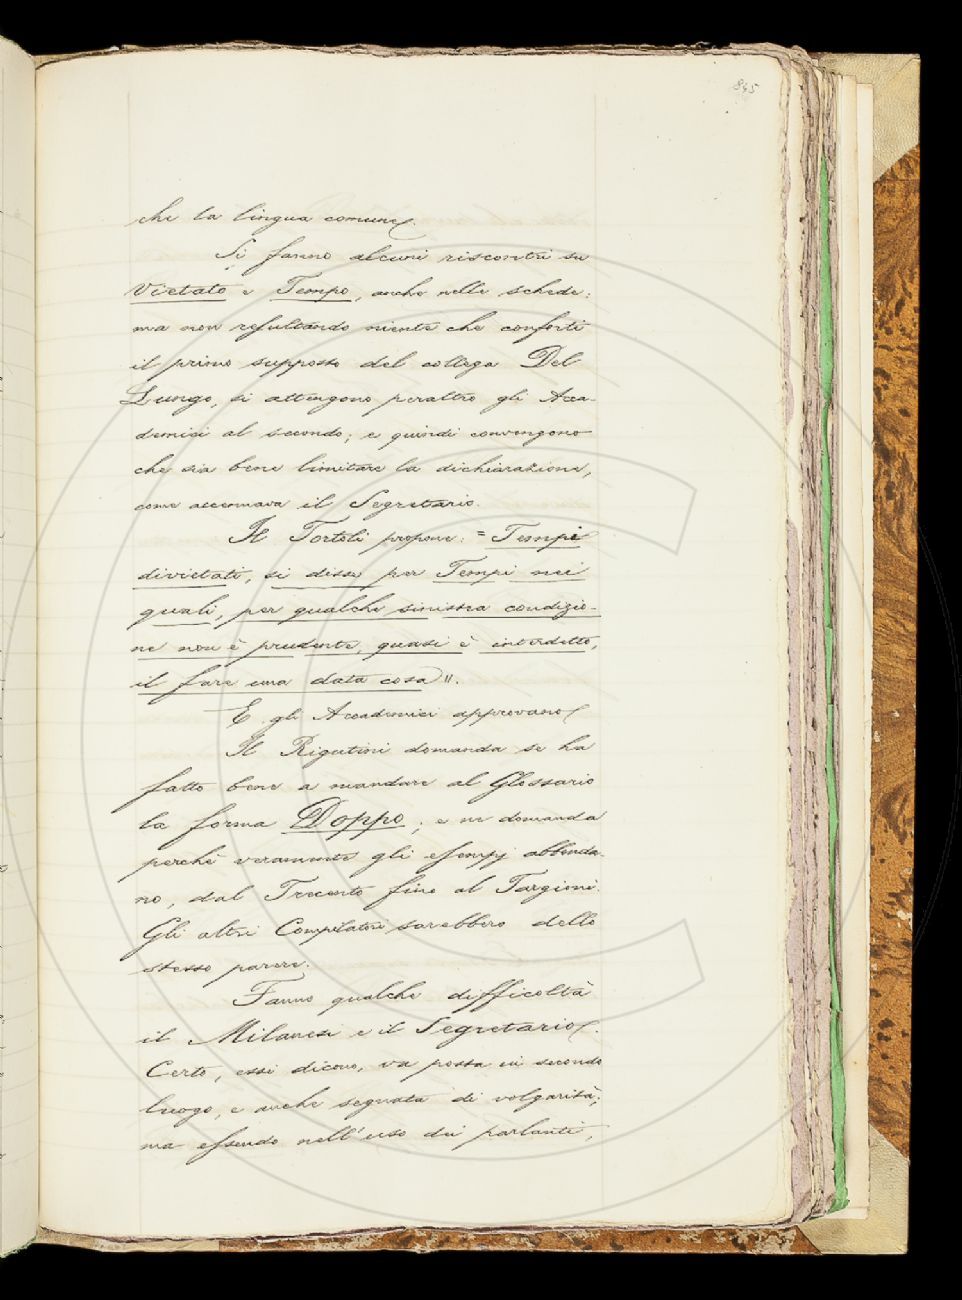 845
che la lingua comune.
Si fanno alcuni riscontri su
Vietato e Tempo, anche nelle schede:
ma non resultando niente che conforti
il primo supposto del collega Del
Lungo, si attengono peraltro gli Acca-
demici al secondo; e quindi convengono
che sia bene limitare la dichiarazione,
come accennava il Segretario.
Il Tortoli propone: = Tempi
divietati, si disse per Tempi nei
quali, per qualche sinistra condizio-
ne non è prudente, quasi è interdetto,
il fare una data cosa".
E gli Accademici approvano.
Il Rigutini domanda se ha
fatto bene a mandare al Glossario
la forma Doppo; e ne domanda
perchè veramente gli esempj abbonda-
no, dal Trecento fino al Targioni.
Gli altri Compilatori sarebbero dello
stesso parere.
Fanno qualche difficoltà
il Milanesi e il Segretario.
Certo, essi dicono, va posta in secondo
luogo, e anche segnata di volgarità;
ma essendo nell'uso dei parlanti,